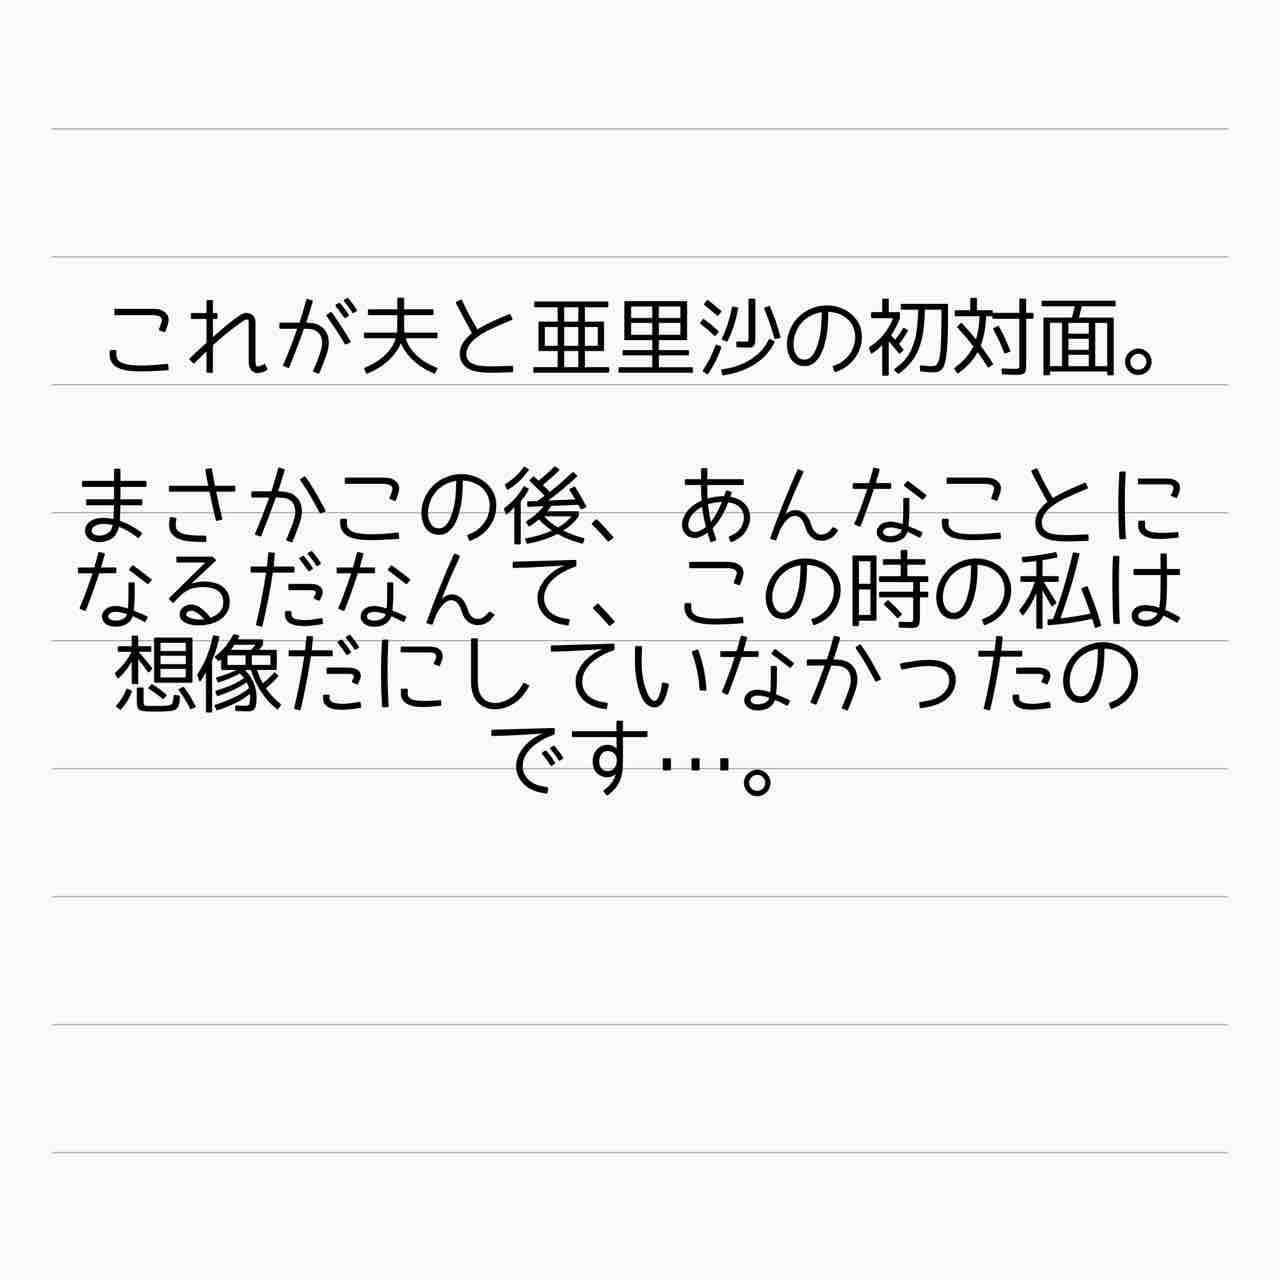 これが夫と亜里沙の初対面。
まさかこの後、あんなことに
なるだなんて、この時の私は
想像だにしていなかったの
です…。